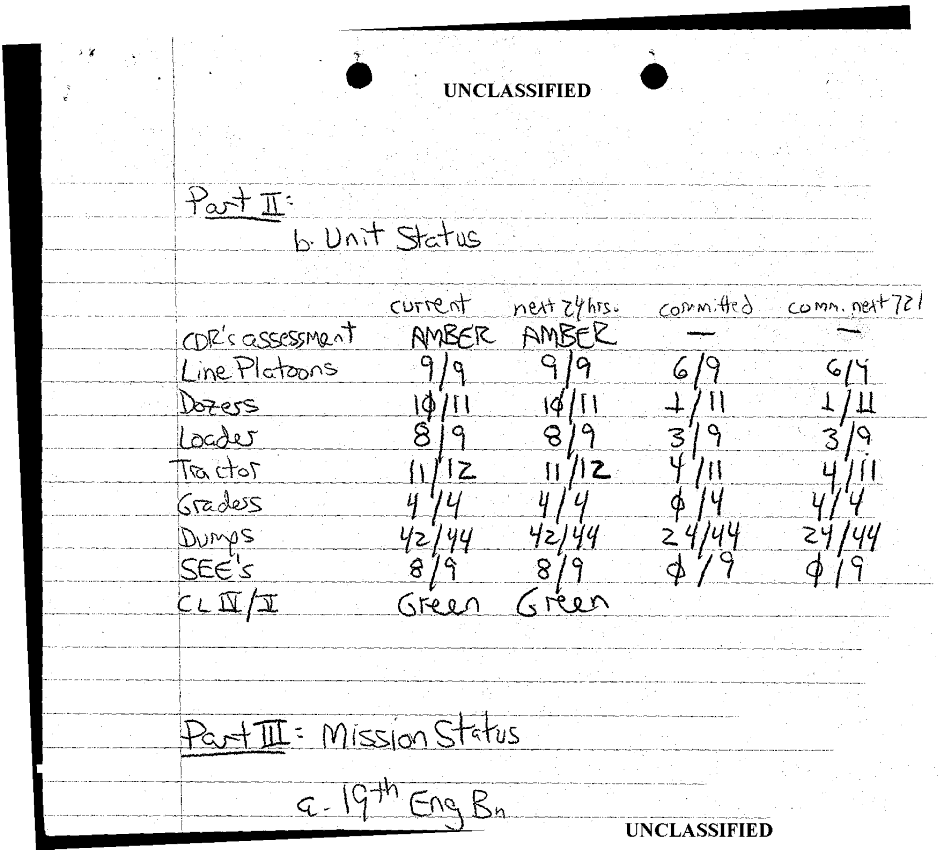 UNCLASSIFIED
Part II:
b. Unit Status
current next 24hrs. committed comm. next 72
CDR's assessment AMBER AMBER — —
Line Platoons 9/9 9/9 6/9 6/9
Dozers 10/11 10/11 1/11 1/11
Loader 8/9 8/9 3/9 3/9
Tractor 11/12 11/12 4/11 4/11
Graders 4/4 4/4 φ/4 4/4
Dumps 42/44 42/44 24/44 24/44
SEE's 8/9 8/9 φ/9 φ/9
CL IV/V Green Green
Part III: Mission Status
a. 19th Eng Bn
UNCLASSIFIED